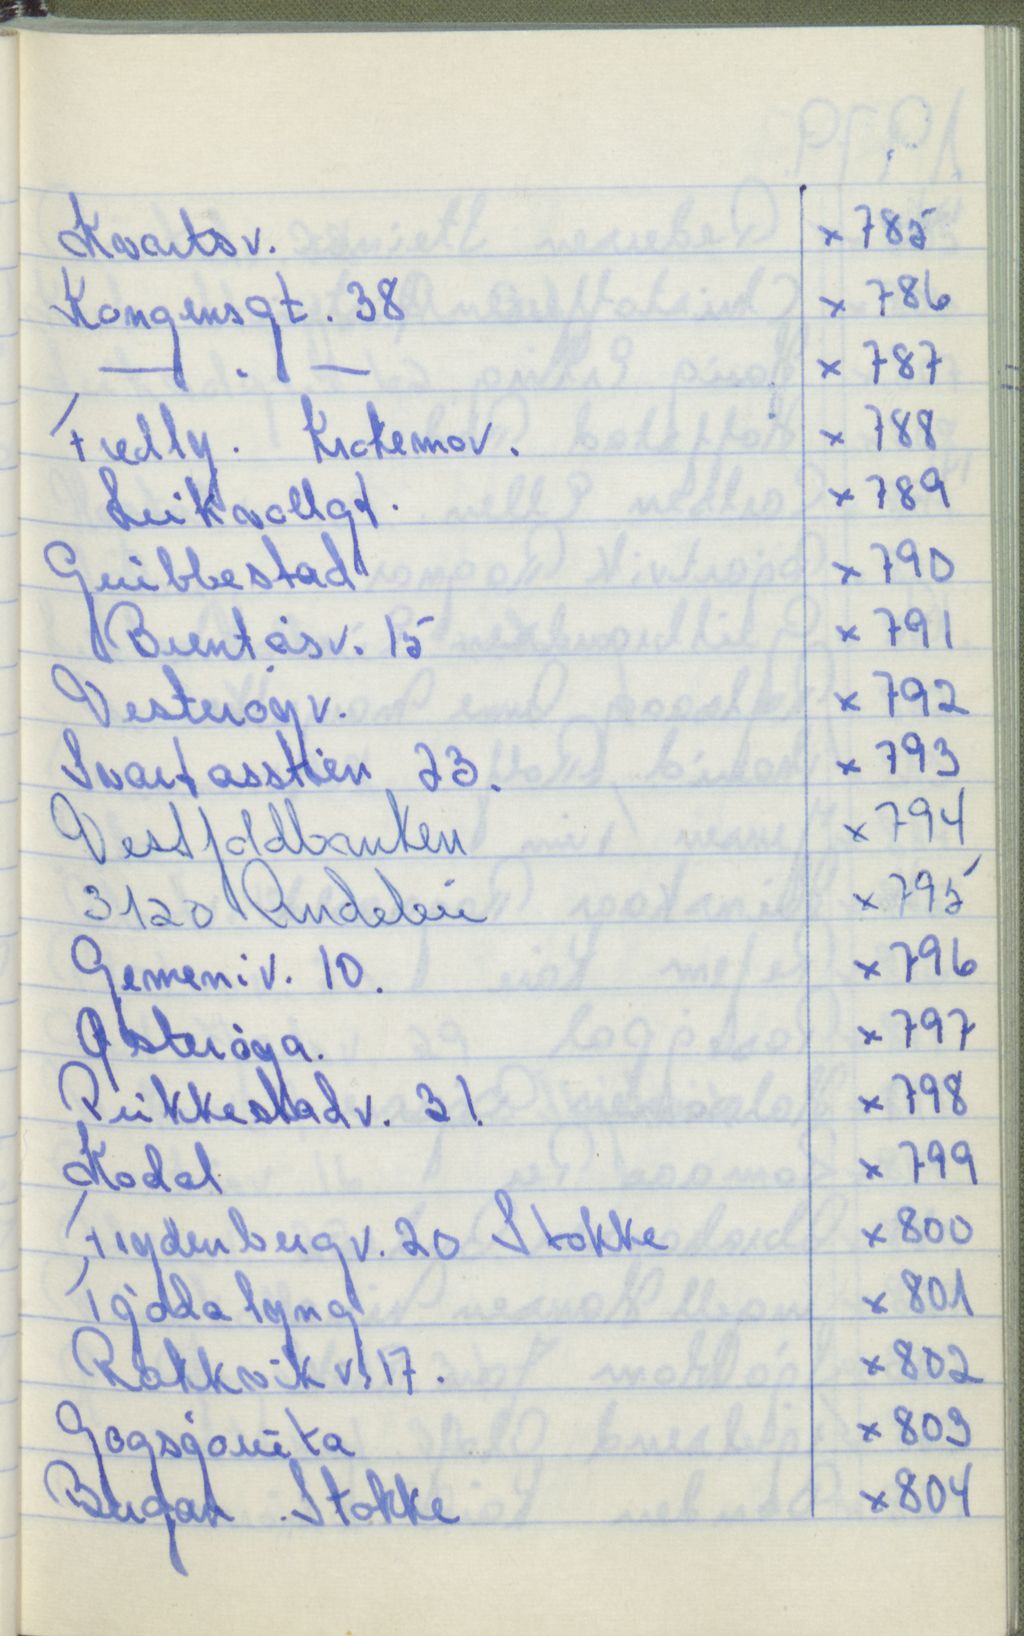 Kvartsv. x 785
Kongensgt. 38 x 786
— . — x 787
Fredly. Krokemov. x 788
Leikvollgt. x 789
Gribbestad x 790
Brentåsv. 15 x 791
Vesterøyv. x 792
Svartåsstien 23. x 793
Vestfoldbanken x 794
3120 Andebu x 795
Gemeniv. 10. x 796
Østerøya. x 797
Rukkestadv. 31. x 798
Kodal x 799
Frydenbergv. 20 Stokke x 800
Tjøllalyng x 801
Rakkvikv. 17. x 802
Gogsjøruta x 803
Bugar. Stokke x 804